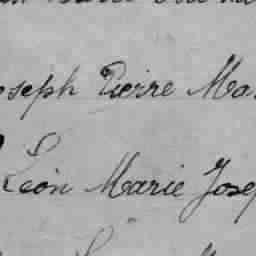 oseph Pierre Ma
Léon Marie Josep